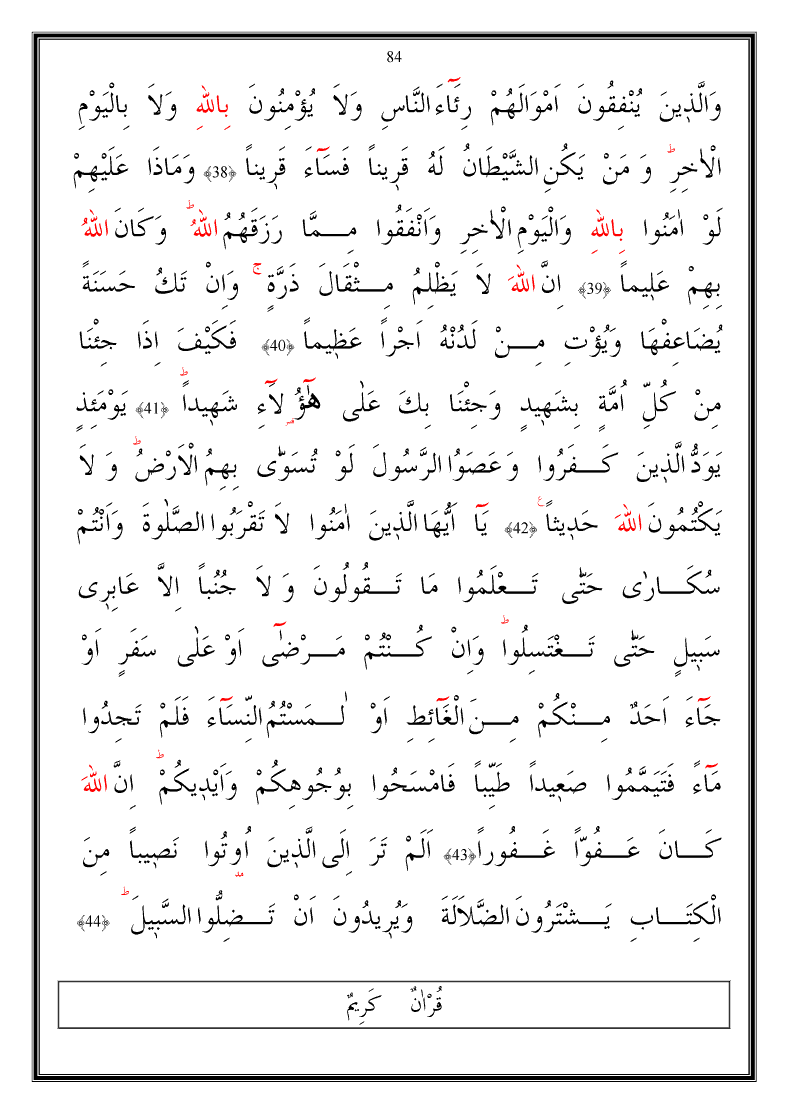 84
وَالَّذ۪ينَ يُنْفِقُونَ اَمْوَالَهُمْ رِئَٓاءَ النَّاسِ وَلاَ يُؤْمِنُونَ بِاللهِ وَلاَ بِالْيَوْمِ
الْاٰخِرِۜ وَ مَنْ يَكُنِ الشَّيْطَانُ لَهُ قَر۪يناً فَسَٓاءَ قَر۪يناً ﴿38﴾ وَمَاذَا عَلَيْهِمْ
لَوْ اٰمَنُوا بِاللهِ وَالْيَوْمِ الْاٰخِرِ وَاَنْفَقُوا مِـــمَّا رَزَقَهُمُ اللهُۜ وَكَانَ اللهُ
بِهِمْ عَل۪يماً ﴿39﴾ اِنَّ اللهَ لاَ يَظْلِمُ مِـــثْقَالَ ذَرَّةٍۚ وَاِنْ تَكُ حَسَنَةً
يُضَاعِفْهَا وَيُؤْتِ مِـــنْ لَدُنْهُ اَجْراً عَظ۪يماً ﴿40﴾ فَكَيْفَ اِذَا جِئْنَا
مِنْ كُلِّ اُمَّةٍ بِشَه۪يدٍ وَجِئْنَا بِكَ عَلٰى هٰٓؤُ۬لَٓاءِ شَه۪يداًۜ ﴿41﴾ يَوْمَئِذٍ
يَوَدُّ الَّذ۪ينَ كَـــفَرُوا وَعَصَوُا الرَّسُولَ لَوْ تُسَوّٰى بِهِمُ الْاَرْضُۜ وَ لاَ
يَكْتُمُونَ اللهَ حَد۪يثاًࣖ ﴿42﴾ يَٓا اَيُّهَا الَّذ۪ينَ اٰمَنُوا لاَ تَقْرَبُوا الصَّلٰوةَ وَاَنْتُمْ
سُكَـــارٰى حَتّٰى تَـــعْلَمُوا مَا تَـــقُولُونَ وَ لاَ جُنُباً اِلاَّ عَابِر۪ى
سَب۪يلٍ حَتّٰى تَـــغْتَسِلُواۜ وَاِنْ كُـــنْتُمْ مَـــرْضٰٓى اَوْ عَلٰى سَفَرٍ اَوْ
جَٓاءَ اَحَدٌ مِـــنْكُمْ مِـــنَ الْغَٓائِطِ اَوْ لٰـــمَسْتُمُ النِّسَٓاءَ فَلَمْ تَجِدُوا
مَٓاءً فَتَيَمَّمُوا صَع۪يداً طَيِّباً فَامْسَحُوا بِوُجُوهِكُمْ وَاَيْد۪يكُمْۜ اِنَّ اللهَ
كَـــانَ عَـــفُوّاً غَـــفُوراً ﴿43﴾ اَلَمْ تَرَ اِلَى الَّذ۪ينَ اُو۫تُوا نَص۪يباً مِنَ
الْكِتَـــابِ يَـــشْتَرُونَ الضَّلاَلَةَ وَيُر۪يدُونَ اَنْ تَـــضِلُّوا السَّب۪يلَۜ ﴿44﴾
قُرْاٰنٌ كَرِيمٌ